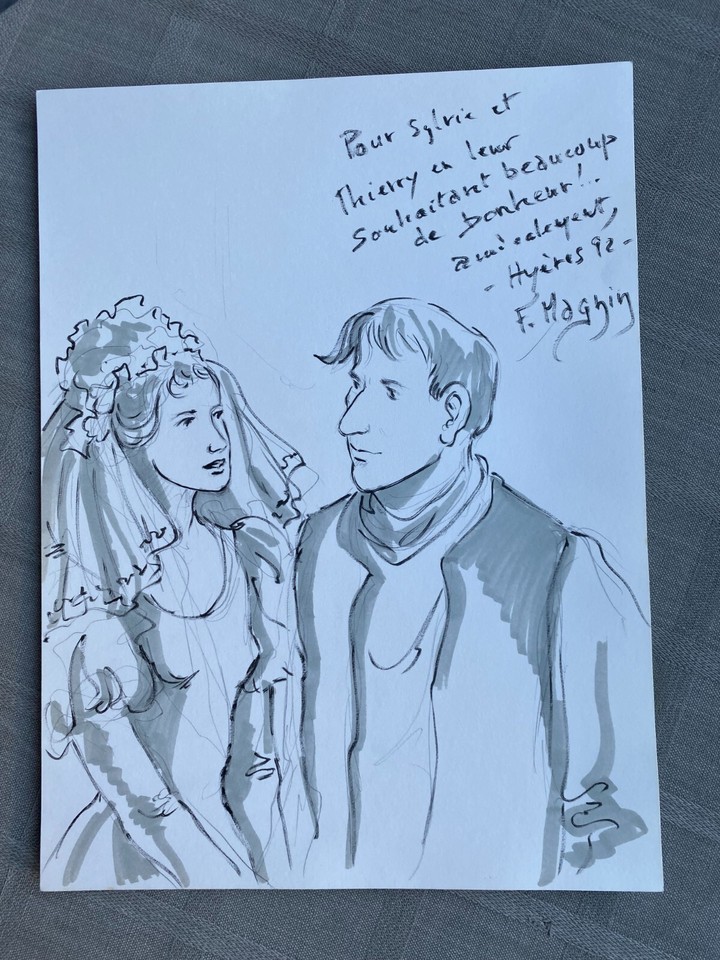 Pour Sylvie et
Thierry en leur
Souhaitant beaucoup
de bonheur!..
amicalement,
- Hyères 92 -
F. Magnin